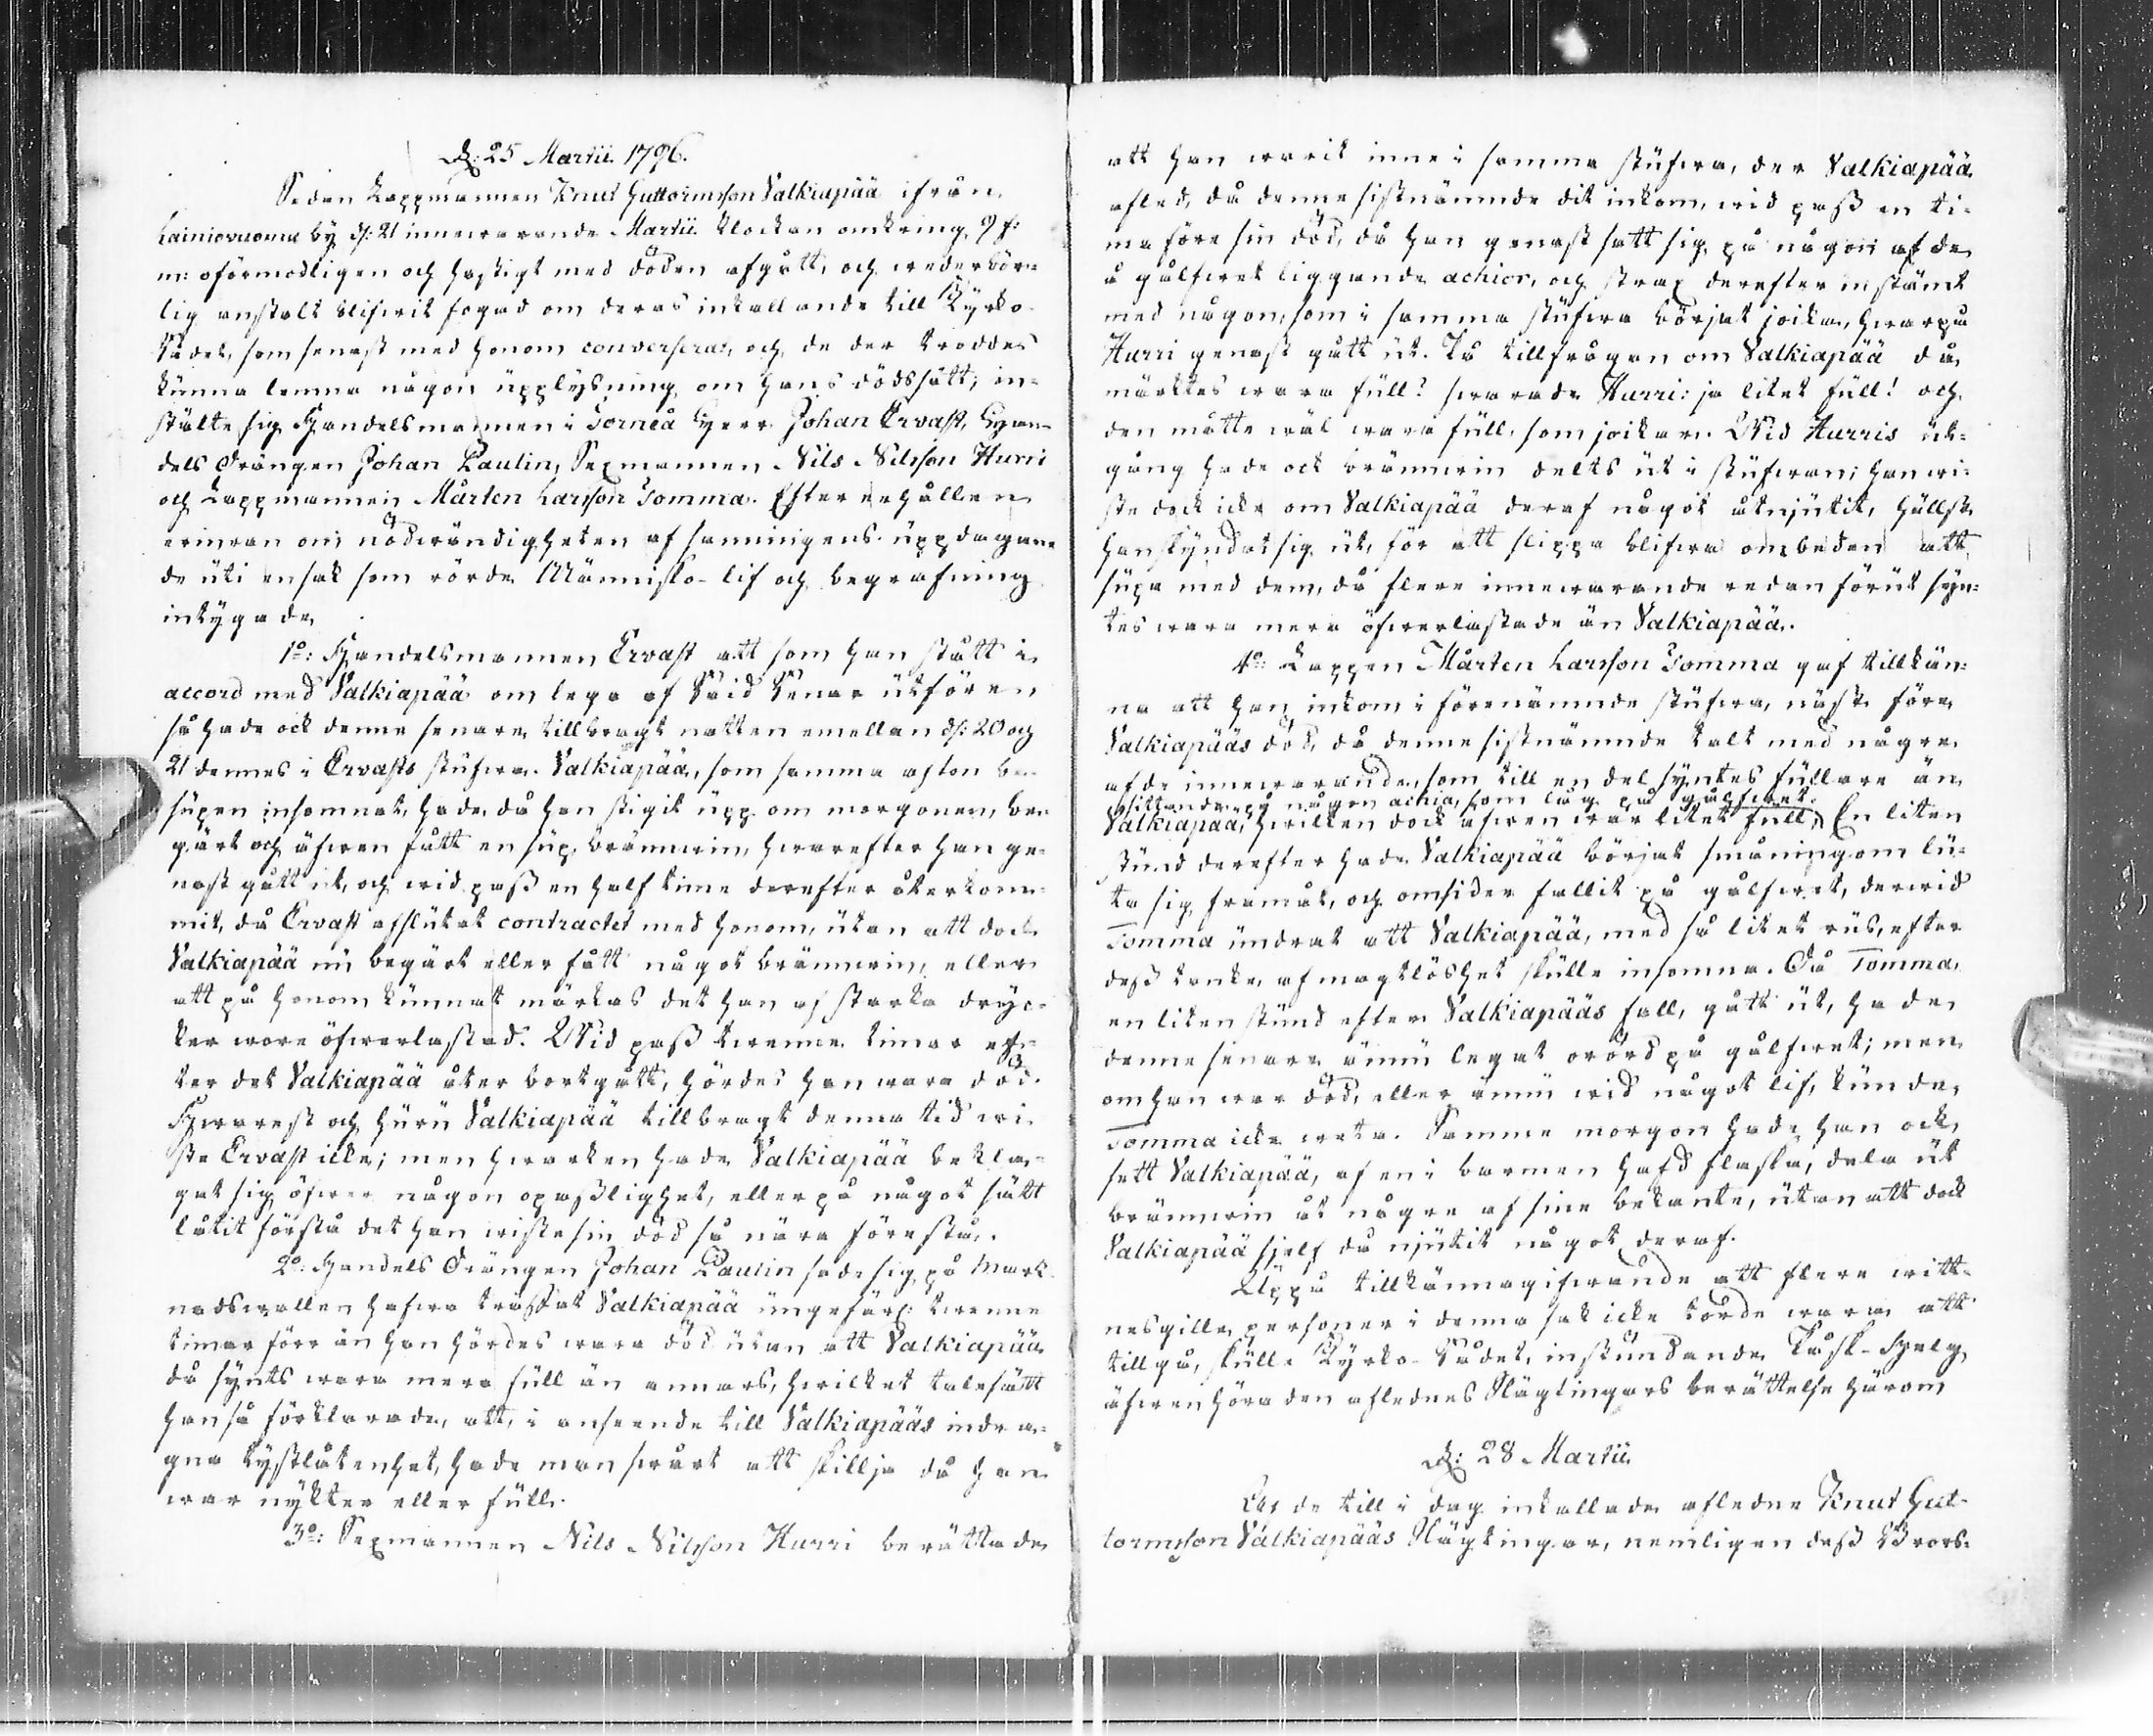 d: 25 Martii 1796.
Sedan Lappmannen Knut Guttormsson Valkiapää ifrån
Lainiovuoma by d: 21 innewarande Martii klockan omkring 9 f:
m: oförmodligen och hastigt med döden afgått, och wederbör-
lig anstalt blifwit fogad om deras inkallande till Kyrko-
Rådet, som senast med honom converserat, och de der troddes
kunna lemna någon upplysning om hans dödssätt; in-
stälte sig Handelsmannen i Torneå Herr Johan Ervast, Han-
dels Drängen Johan Paulin, Sexmannen Nils Nilsson Hurri
och Lappmannen Mårten Larsson Tomma. Efter erhållen
erinran om nödwändigheten af sanningens uppdagan-
de uti en sak som rörde Människo-lif och begrafning
intygade
1o: Handelsmannen Ervast att som han stått i
accord med Valkiapää om lega af Råid Renar utföre
så hade ock denne senare tillbragt natten emellan d: 20 och
21 dennes i Ervasts stufwa. Valkiapää, som samma afton be-
supen insomnat, hade, då han stigit upp om morgonen, be-
gärt och äfwen fått en sup brännwin, hwarefter han ge-
nast gått ut, och wid pass en half time derefter återkom-
mit, då Ervast afslutat contractet med honom, utan att dock
Valkiapää nu begärt eller fått något brännwin, eller
att på honom kunnat märkas det han af starka dryc-
ker wore öfwerlastad. Wid pass twenne timar ef-
ter det Valkiapää åter bortgått, hördes han wara död.
Hwarest och huru Valkiapää tillbragt denna tid wi-
ste Ervast icke; men hwarken hade Valkiapää bekla-
gat sig öfwer någon opasslighet, eller på något sätt
låtit förstå det han wiste sin död så nära förestå.
2o: Handels Drängen Johan Paulin sade sig på Mark-
nadswallen hafwa träffat Valkiapää ungefär twenne
timar förr än han hördes wara död utan att Valkiapää
då synts wara mera full än annars, hwilket talesätt
han så förklarade, att, i anseende till Valkiapääs indra-
gna tystlåtenhet, hade man swårt att skillja då han
war nykter eller full.
3o: Sexmannen Nils Nilsson Hurri berättade
att han warit inne i samma stufwa, der Valkiapää
afled, då denne sistnämnde dit inkom, wid pass en ti-
ma före sin död, då han genast satt sig på någon af de
å gålfwet liggande achior, och strax derefter instämt
med någon, som i samma stufwa börjat joika, hwarpå
Hurri genast gått ut. På tillfrågan om Valkiapää då
märktes wara full? swarade Hurri: ja litet full! och
den måtte wäl wara full, som joikar. Wid Hurris ut-
gång hade ock brännwin delts ut i stufwan; han wi-
ste dock icke om Valkiapää deraf något åtnjutit, hällst
han skyndat sig ut, för att slippa blifwa ombeden att
supa med dem, då flere innewarande redan förut syn-
tes wara mera öfwerlastade än Valkiapää.
4o: Lappen Mårten Larsson Tomma gaf tillkän-
na att han inkom i förenämnde stufwa, näst före
Valkiapääs död, då denne sistnämnde talt med någre
af de innewarande, som till en del syntes fullare än
sittande på någon achia, som låg på gålfwet.
Valkiapää, hwilken dock äfwen war litet full; En liten
stund derefter hade Valkiapää börjat småningom lu-
ta sig framåt, och omsider fallit på gålfwet, derwid
Tomma undrat att Valkiapää, med så litet rus, efter
dess tanke, af magtlöshet skulle insomna. Då Tomma
en liten stund efter Valkiapääs fall, gått ut, hade
denne senare ännu legat orörd på gålfwet; men
om han war död, eller ännu wid något lif, kunde
Tomma icke weta. Samme morgon hade han ock
sett Valkiapää, af en i barmen hafd flaska, dela ut
brännwin åt någre af sine bekante, utan att dock
Valkiapää sjelf då njutit något deraf.
Uppå tillkännagifwande att flere witt-
nesgille personer i denna sak icke torde wara att
tillgå, skulle Kyrko-Rådet, instundande Påsk-Helg
äfwen höra den aflednes Släglingars berättelse härom
d: 28 Martii
Läs de till i dag inkallade afledne Knut Gut-
tormsson Valkiapääs Slägtingar, nemligen dess Brors-